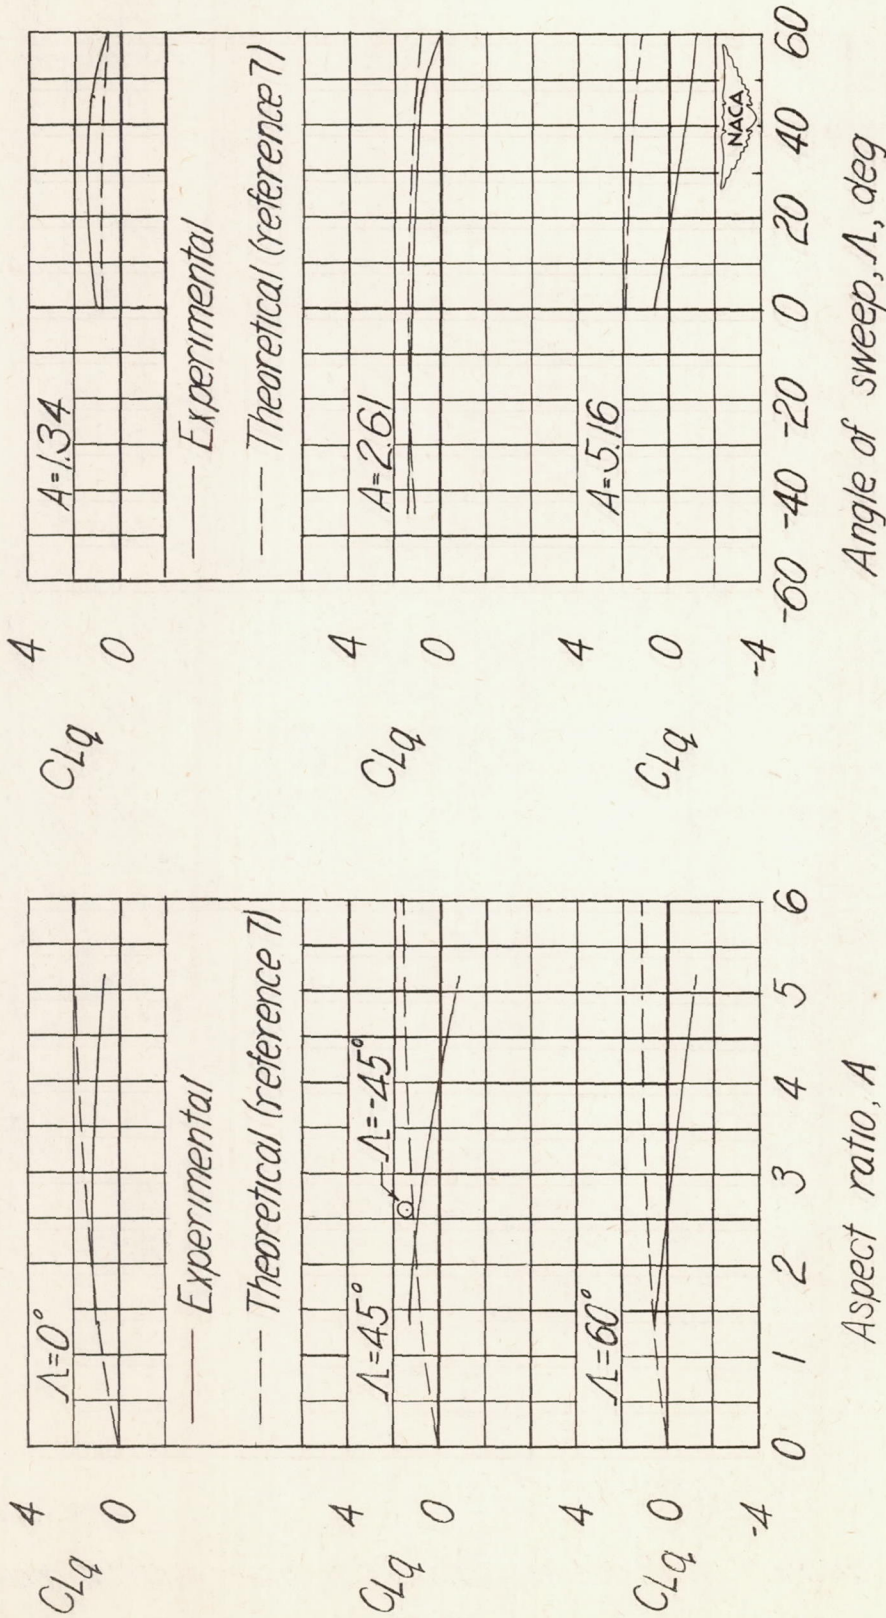 CLq
4
0
Λ=0°
Experimental
Theoretical (reference 7)
CLq
4
0
Λ=45°
Λ=-45°
CLq
4
0
-4
Λ=60°
0 1 2 3 4 5 6
Aspect ratio, A
CLq
4
0
A=1.34
Experimental
Theoretical (reference 7)
CLq
4
0
A=2.61
CLq
4
0
-4
A=5.16
NACA
-60 -40 -20 0 20 40 60
Angle of sweep, Λ, deg